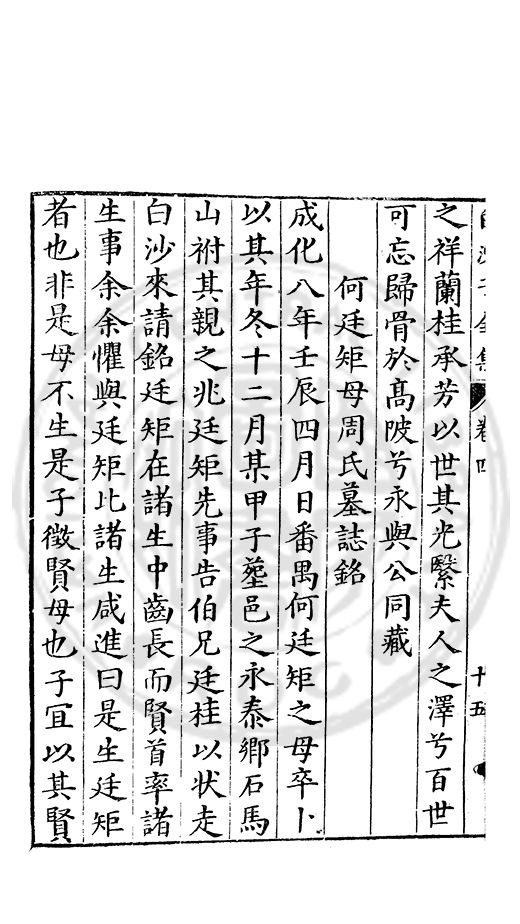 白沙子全集 卷四 十五
之祥蘭桂承芳以世其光緊夫人之澤兮百世
可忘歸骨於高陂兮永與公同藏
何廷矩母周氏墓誌銘
成化八年壬辰四月日番禺何廷矩之母卒卜
以其年冬十二月某甲子塟邑之永泰鄉石馬
山祔其親之兆廷矩先事告伯兄廷桂以狀走
白沙來請銘廷矩在諸生中齒長而賢首率諸
生事余余懼與廷矩比諸生咸進曰是生廷矩
者也非是母不生是子徵賢母也子宜以其賢